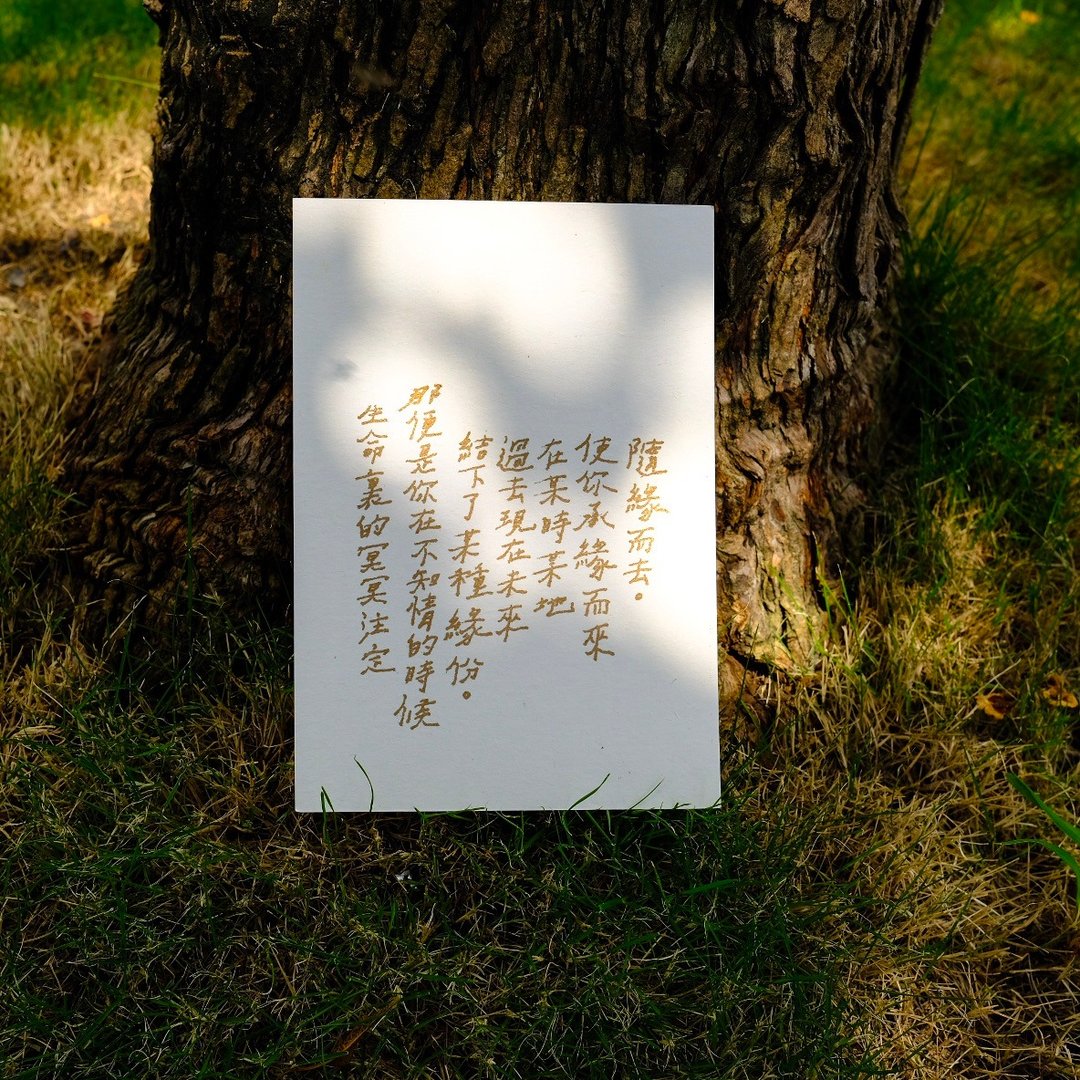 生命裏的冥冥注定
那便是你在不知情的時候
結下了某種緣份。
過去現在未來
在某時某地
使你承緣而來
隨緣而去。